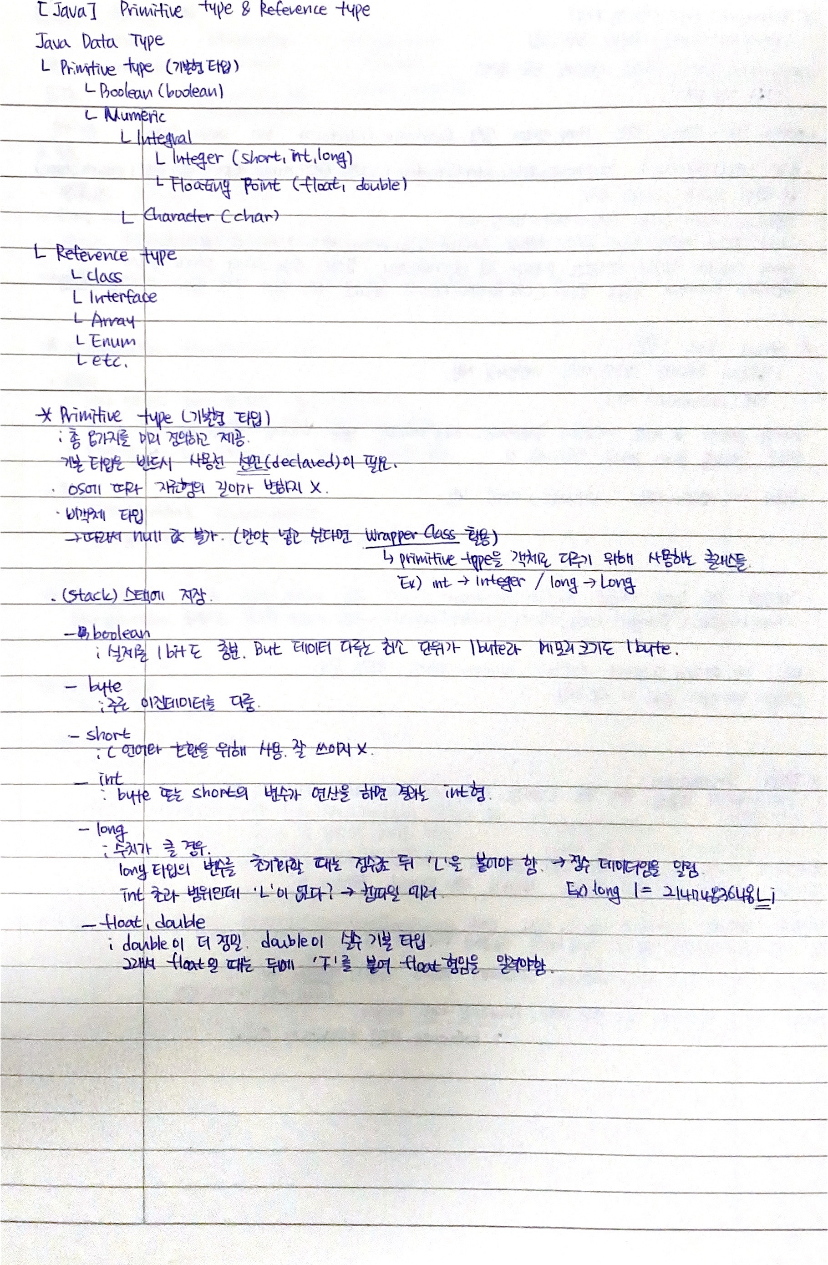 [Java] Primitive type & Reference type
Java Data Type
ㄴ Primitive type (기본형 타입)
ㄴ Boolean (boolean)
ㄴ Numeric
ㄴ Integral
ㄴ Integer (short, int, long)
ㄴ Floating Point (float, double)
ㄴ Character (char)
ㄴ Reference type
ㄴ class
ㄴ Interface
ㄴ Array
ㄴ Enum
ㄴ etc.
* Primitive type (기본형 타입)
; 총 8가지를 미리 정의하고 제공.
기본 타입은 반드시 사용전 선언(declared)이 필요.
· OS에 따라 자료형의 길이가 변하지 X.
· 비객체 타입
→ 따라서 null 값 불가. (만약 넣고 싶다면 Wrapper Class 활용)
↳ primitive type을 객체로 다루기 위해 사용하는 클래스들.
Ex) int → Integer / long → Long
· (Stack) 스택에 저장
- boolean
; 실제론 1bit도 충분. But 데이터 다루는 최소 단위가 1byte라 메모리 크기도 1byte.
- byte
; 주로 이진데이터를 다룸.
- short
; C언어와 호환을 위해 사용. 잘 쓰이지 X.
- int
: byte 또는 short의 변수가 연산을 하면 결과는 int형.
- long
; 수치가 클 경우.
long타입의 변수를 초기화할 때는 정수값 뒤 'L'을 붙여야 함. → 정수 데이터임을 알림.
int 초과 범위인데 'L'이 없다? → 컴파일 에러 Ex) long l = 2147483648L;
- float, double
; double이 더 정밀. double이 실수 기본 타입.
그래서 float일 때는 뒤에 'F'를 붙여 float형임을 알려야함.